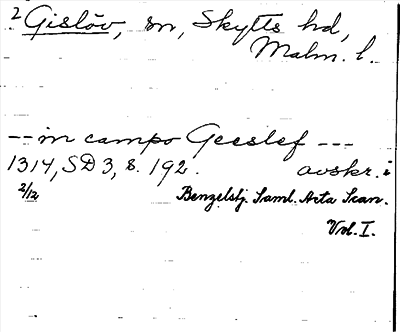 2 Gislöv, sn, Skytts hd,
Malm. l.
-- in campo Geeslef ---
1314, SD 3, s. 192. avskr. i
2/12 Benzelstj. Saml. Acta Scan.
Vol. I.